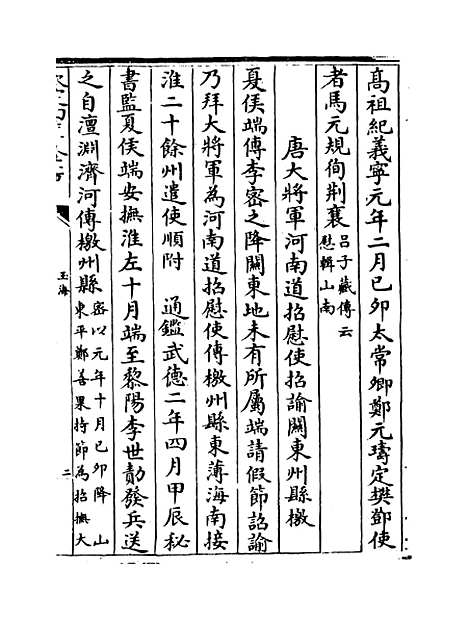 高祖紀義寧元年二月己卯太常卿鄭元璹定樊鄧使
者馬元規徇荆襄吕子臧傳云
慰輯山南
唐大將軍河南道招慰使招諭關東州縣檄
夏侯端傳李密之降關東地未有所屬端請假節詔諭
乃拜大將軍為河南道招慰使傳檄州縣東薄海南接
淮二十餘州遣使順附　通鑑武德二年四月甲辰秘
書監夏侯端安撫淮左十月端至黎陽李世勣發兵送
之自澶淵濟河傳檄州縣密以元年十月己卯降　山
東平鄭善果持節為招撫大
玉海
二